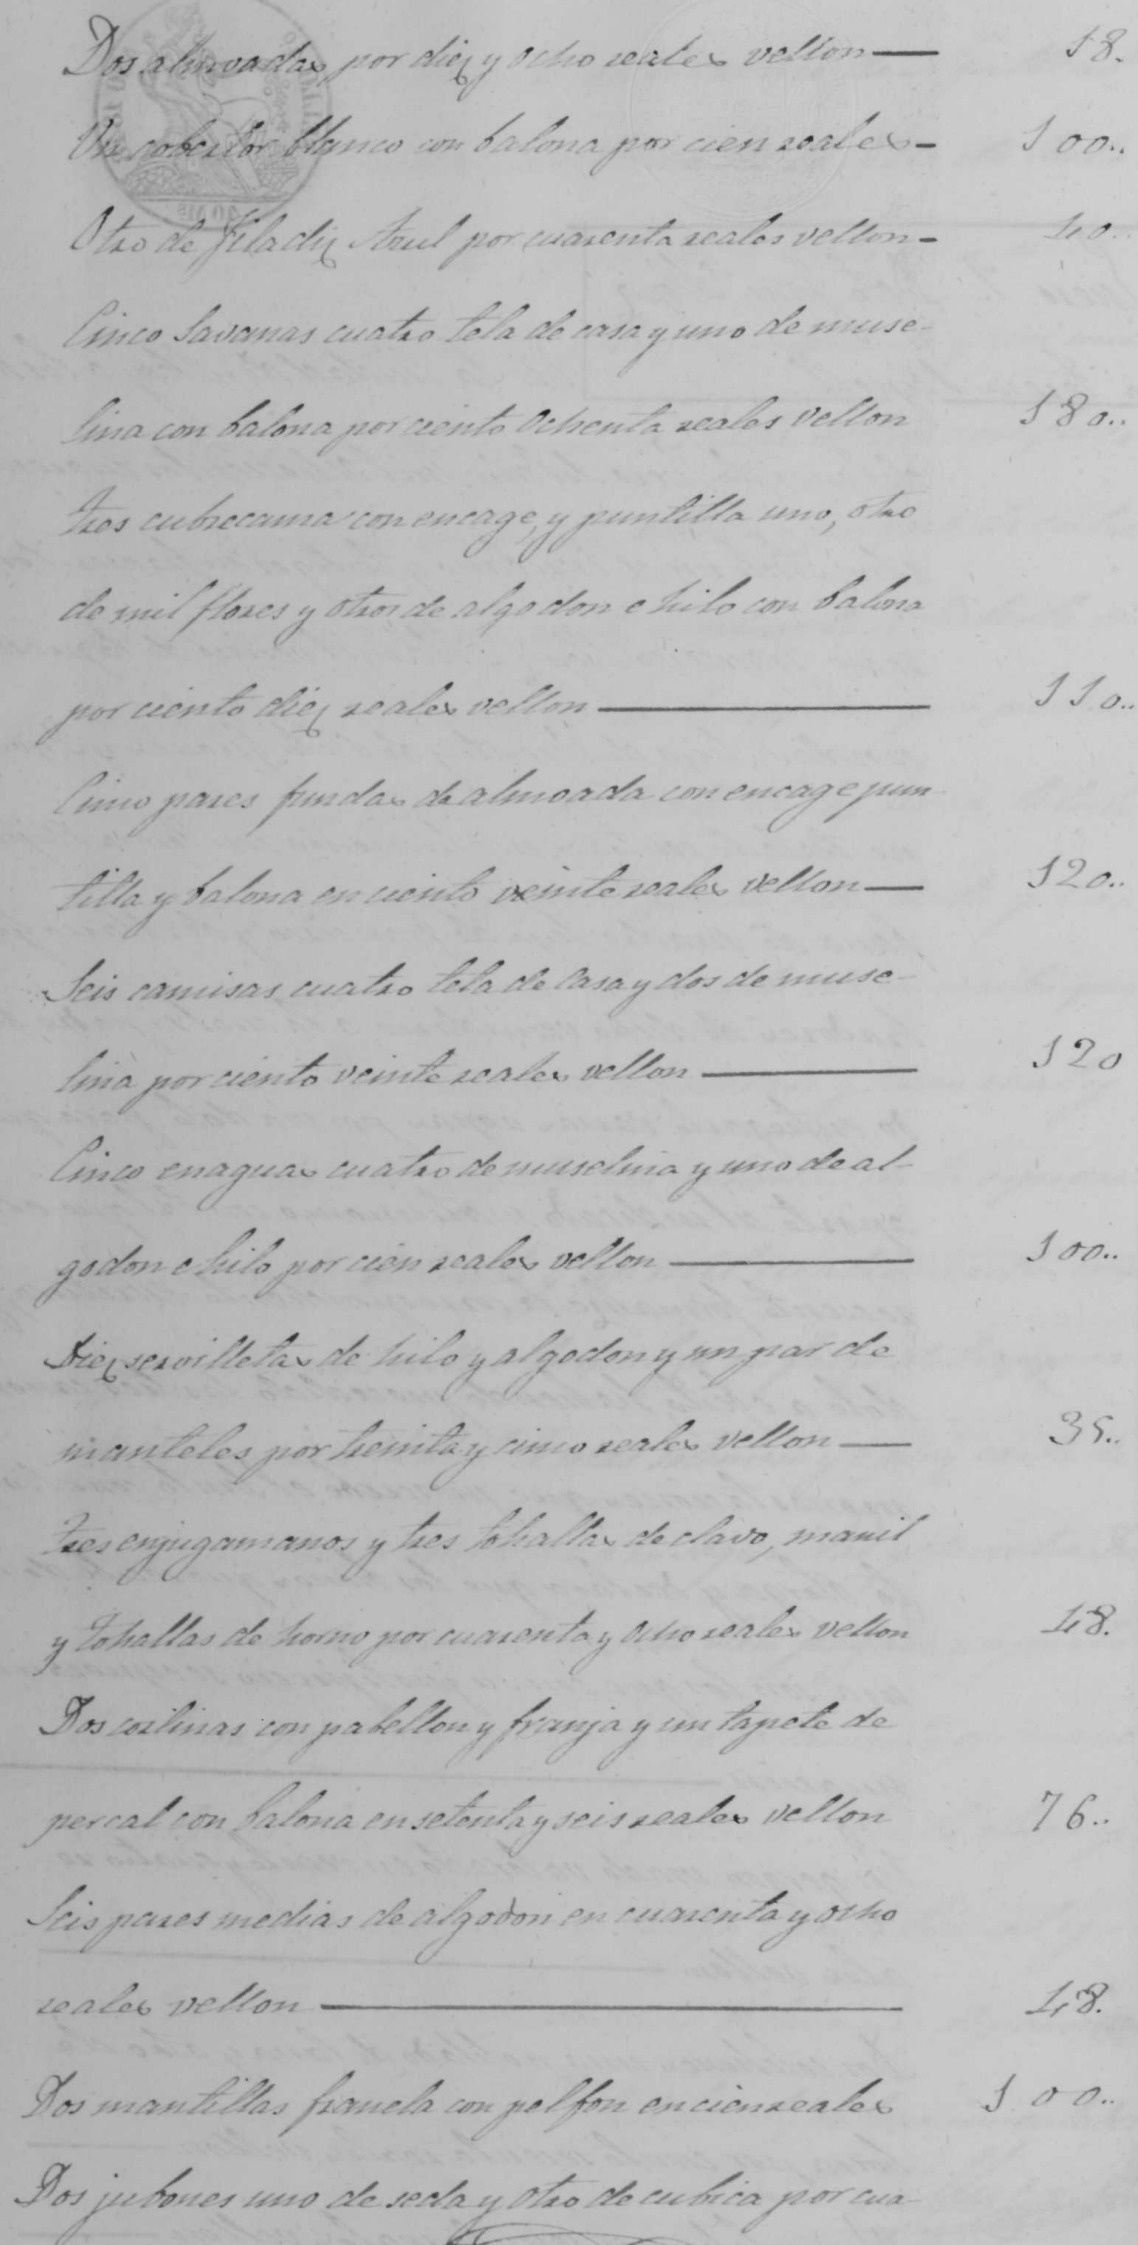 Dos almoadas, por diez y ocho reales vellon — 18.
Un cobertor blanco con balona por cien reales - 100..
Otro de filadiz Azul por cuarenta reales vellon - 40..
Cinco Savanas cuatro tela de casa y uno de muse-
lina con balona por ciento Ochenta reales vellon 180..
tres cubrecama con encage, y puntilla uno, otro
de mil flores y otros de algodon e hilo con balona
por ciento diez reales vellon — 110..
Cinco pares fundas de almoada con encage pun
tilla y balona en ciento veinte reales vellon — 120..
Seis camisas cuatro tela de Casa y dos de muse-
lina por ciento veinte reales vellon — 120
Cinco enaguas cuatro de muselina y uno de al-
godon e hilo por cien reales vellon — 100..
Diez servilletas de hilo y algodon y un par de
manteles por treinta y cinco reales vellon — 35..
tres enjugamanos y tres tohallas de clavo, manil
y tohallas de horno por cuarenta y ocho reales vellon 48.
Dos cortinas con pabellon y franja y un tapete de
percal con balona en setenta y seis reales vellon 76..
Seis pares medias de algodon en cuarenta y ocho
reales vellon — 48.
Dos mantillas franela con pelfon en cien reales 100..
Dos jubones uno de seda y otro de cubica por cua-